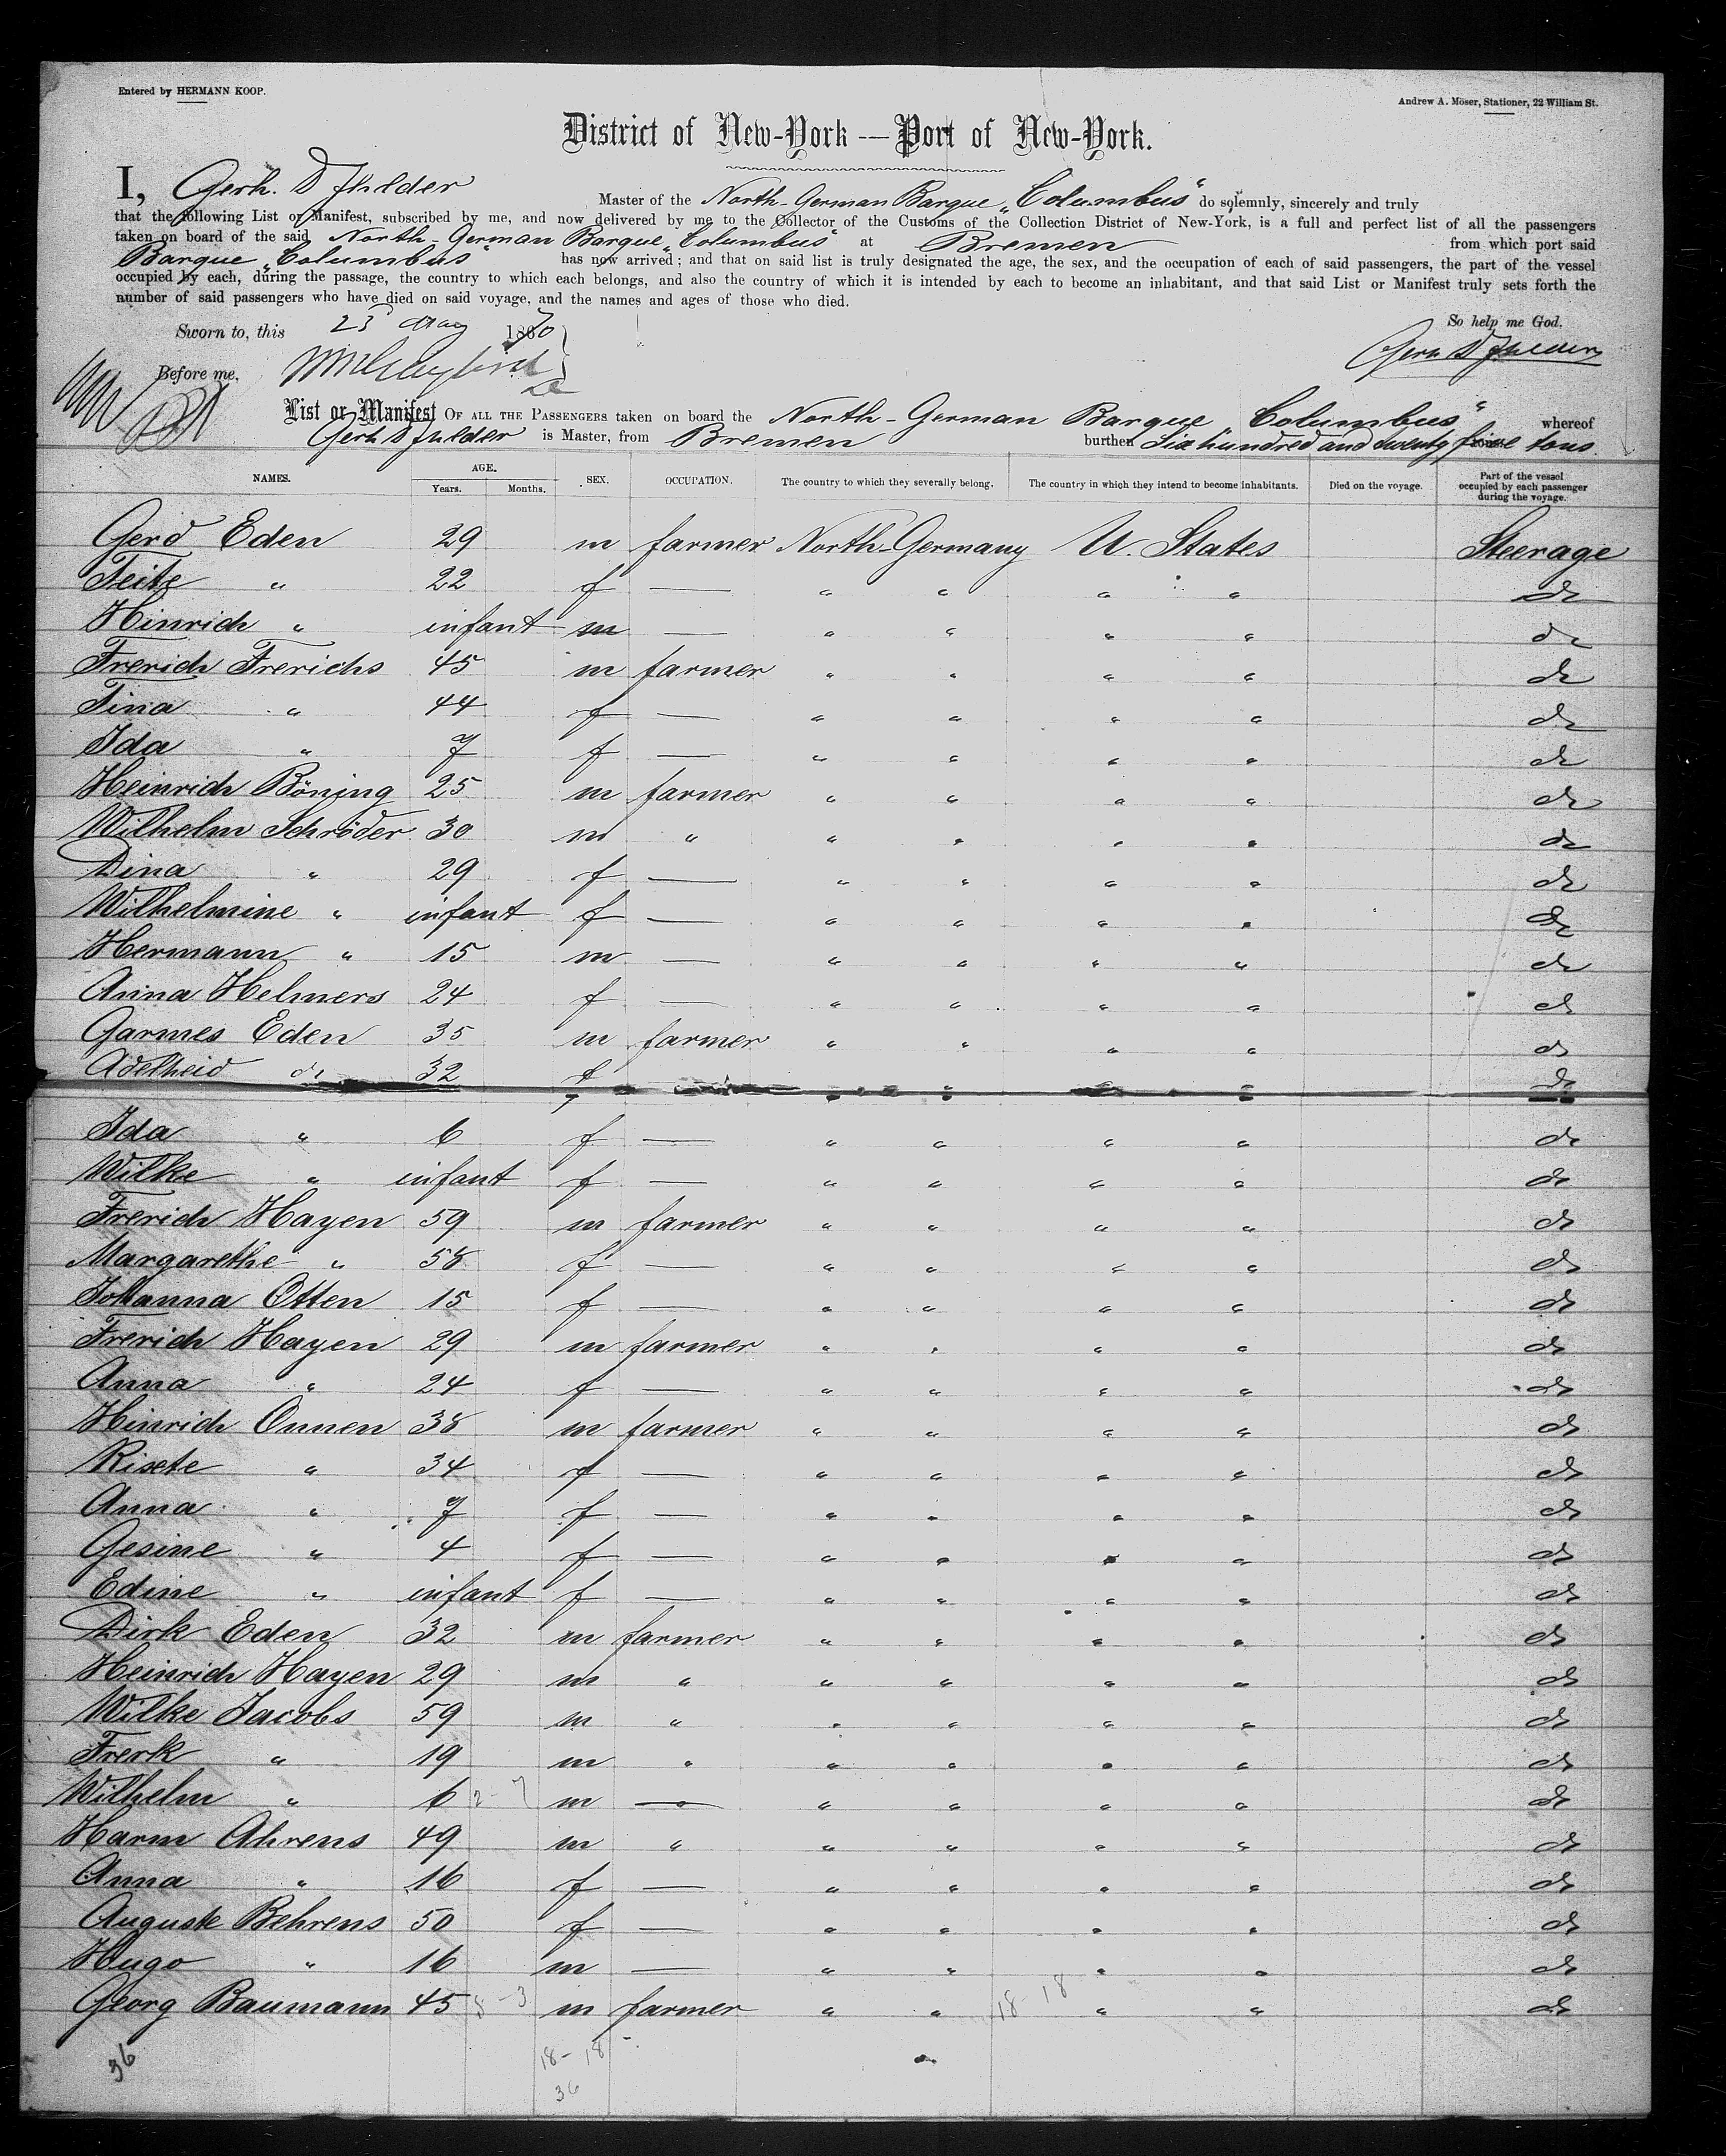 Entered by HERMANN KOOP.
Andrew A. Möser, Stationer, 22 William St.
District of New-York — Port of New-York.
I, Gerh. D Master of the North-German Barque „Columbus" do solemnly, sincerely and truly
that the following List or Manifest, subscribed by me, and now delivered by me to the Collector of the Customs of the Collection District of New-York, is a full and perfect list of all the passengers
taken on board of the said North-German Barque „Columbus" at Bremen from which port said
Barque „Columbus" has now arrived; and that on said list is truly designated the age, the sex, and the occupation of each of said passengers, the part of the vessel
occupied by each, during the passage, the country to which each belongs, and also the country of which it is intended by each to become an inhabitant, and that said List or Manifest truly sets forth the
number of said passengers who have died on said voyage, and the names and ages of those who died.
Sworn to, this 23 May 1870 So help me God.
Before me, Gerh D
List or Manifest OF ALL THE PASSENGERS taken on board the North-German Barque Columbus" whereof
Gerh D is Master, from Bremen burthen Six hundred and twenty five tons.
NAMES. AGE. Years. Months. SEX. OCCUPATION. The country to which they severally belong. The country in which they intend to become inhabitants. Died on the voyage. Part of the vessel occupied by each passenger during the voyage.
Gerd Eden 29 m farmer North-Germany U. States Steerage
Feite " 22 f — " " " " do
Hinrich " infant m — " " " " do
Frerich Frerichs 45 m farmer " " " " do
Tina " 44 f — " " " " do
Ida " 7 f — " " " " do
Heinrich Böning 25 m farmer " " " " do
Wilhelm Schröder 30 m " " " " " do
Dina " 29 f — " " " " do
Wilhelmine " infant f — " " " " do
Hermann " 15 m — " " " " do
Anna Helmers 24 f — " " " " do
Garmes Eden 35 m farmer " " " " do
Adelheid do 32 f " " " " do
Ida " 6 f — " " " " do
Wilke " infant f — " " " " do
Frerich Hayen 59 m farmer " " " " do
Margarethe " 58 f — " " " " do
Johanna Otten 15 f — " " " " do
Frerich Hayen 29 m farmer " " " " do
Anna " 24 f — " " " " do
Hinrich Onnen 38 m farmer " " " " do
Risete " 34 f — " " " " do
Anna " 7 f — " " " " do
Gesine " 4 f — " " " " do
Edine " infant f — " " " " do
Dirk Eden 32 m farmer " " " " do
Heinrich Hayen 29 m " " " " " do
Wilke Jacobs 59 m " " " " " do
Frerk " 19 m " " " " " do
Wilhelm " 6 2-7 m — " " " " do
Harm Ahrens 49 m " " " " " do
Anna " 16 f — " " " " do
Auguste Behrens 50 f — " " " " do
Hugo " 16 m — " " " " do
Georg Baumann 45 8-3 m farmer " " 18-18 " " do
36 18-18
36